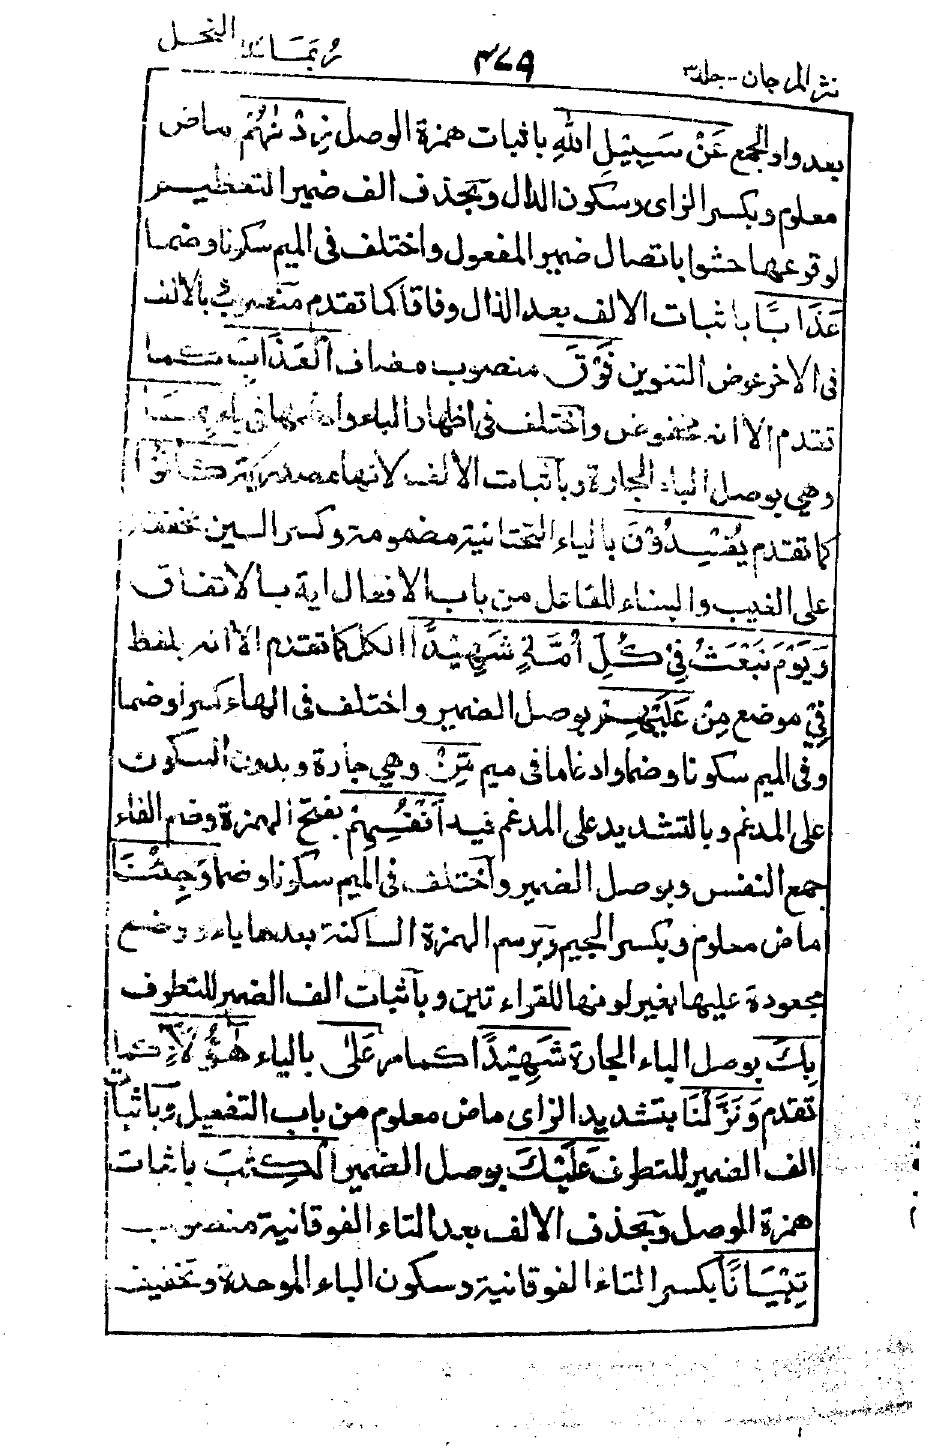 نثر المرجان - جلد ٣
٣٧٩
ربما النحل
بعد واو الجمع عَنْ سَبِيْلِ اللّٰهِ باثبات همزة الوصل زِدْنٰهُمْ ماض
معلوم وبكسر الزاى وسكون الدال وبحذف الف ضمير التعظيم
لوقوعها حشوا باتصال ضمير المفعول واختلف فى الميم سكونا وضما
عَذَابًا باثبات الالف بعد الذال وفاقا كما تقدم منصوب بالالف
فى الاخر عوض التنوين فَوْقَ منصوب مضاف الْعَذَابِ كما
تقدم الا انه مخفوض واختلف فى اظهار الباء وادغامها فى باء بِمَا
وهى بوصل الباء الجارة وباثبات الالف لانها مصدرية كَانُوْا
كما تقدم يُفْسِدُوْنَ بالياء التحتانية مضمومة وكسر السين مخففة
على الغيب والبناء للفاعل من باب الافعال اية بالاتفاق
وَيَوْمَ نَبْعَثُ فِيْ كُلِّ اُمَّةٍ شَهِيْدًا الكل كما تقدم الا انه بلفظ
فِيْ موضع مِنْ عَلَيْهِمْ بوصل الضمير واختلف فى الهاء كسرا وضما
وفى الميم سكونا وضما وادغاما فى ميم مِّنْ وهى جارة وبدون السكون
على المدغم وبالتشديد على المدغم فيه اَنْفُسِهِمْ بفتح الهمزة وضم الفاء
جمع النفس وبوصل الضمير واختلف فى الميم سكونا وضما وَجِئْنَا
ماض معلوم وبكسر الجيم وبرسم الهمزة الساكنة بعدها ياء ووضع
مجعودة عليها بغير لونها للقراءتين وباثبات الف الضمير للتطرف
بِكَ بوصل الباء الجارة شَهِيْدًا كما مر عَلٰى بالياء هٰٓؤُلَآءِ كما
تقدم وَنَزَّلْنَا بتشديد الزاى ماض معلوم من باب التفعيل وباثبات
الف الضمير للتطرف عَلَيْكَ بوصل الضمير الْكِتٰبَ باثبات
همزة الوصل وبحذف الالف بعد التاء الفوقانية منصوب
تِبْيَانًا بكسر التاء الفوقانية وسكون الباء الموحدة وتخفيف